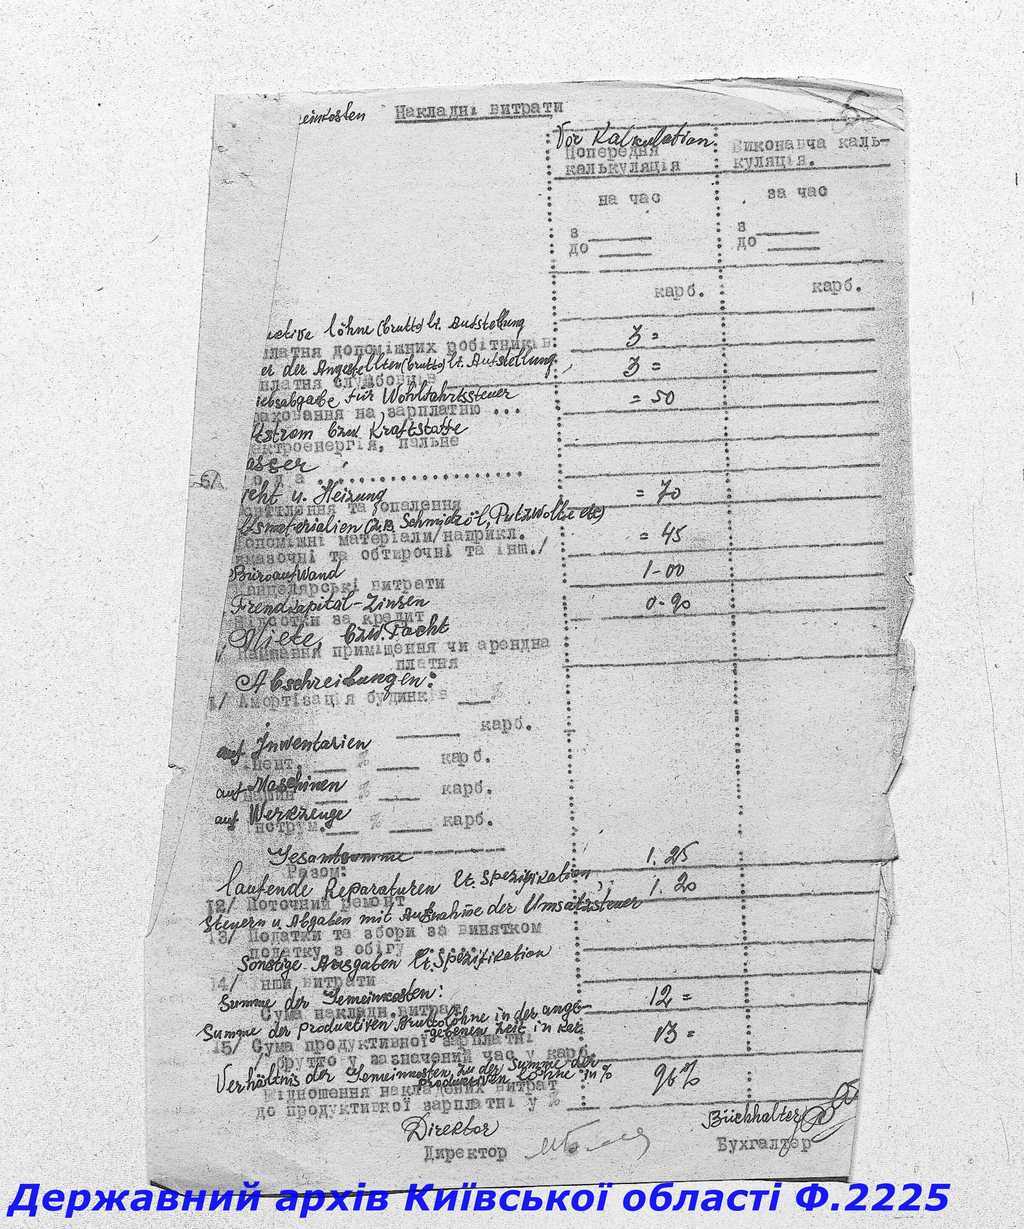 einkosten Накладні витрати
Vor Kalkulation
Попередня калькуляція
Виконавча каль-
куляція.
на час
за час
з ____
до ____
з ____
до ____
карб.
карб.
ktive löhne (brutto) lt. Aufstellung
платня допоміжних робітників. 3 =
er der Angestellten (brutto) lt. Aufstellung
платня службовців 3 =
iebsabgabe für Wohlfahrtssteuer
аховання на зарплатню ... = 50
ftstrom bzw Kraftstoffe
ектроенергія, пальне
asser
ода ....................
icht u. Heizung
світлення та опалення = 70
materialien (z.B. Schmieröl, Putzwolle etc)
опоміжні матеріали/наприкл.
мазочні та обтирочні та інш./ = 45
Büroaufwand
Канцелярські витрати 1-00
Fremdkapital-Zinsen
Відсотки за кредит 0-90
Miete, bzw. Pacht
наймання приміщення чи арендна
платня
Abschreibungen:
1/ Амортізація будинків ___ %
____ карб.
auf Inwentarien
ент. ___ % ____ карб.
auf Maschinen
машин ___ % ____ карб.
auf Werkzeuge
нструм. ___ % ____ карб.
Gesamtsumme
Разом: 1.25
laufende Reparaturen lt. Spezifikation
12/ Поточний ремонт 1.20
Steuern u. Abgaben mit Ausnahme der Umsatzsteuer
13/ Податки та збори за винятком
податку з обігу
Sonstige Ausgaben lt. Spezifikation
14/ Інши витрати
Summe der Gemeinkosten:
Сума накладн. витрат 12 =
Summe der produktiven Bruttolöhne in der ange-
gebenen Zeit in Kar.
15/ Сума продуктивної зарплатні
/брутто у зазначений час у карб. 13 =
Verhältnis der Gemeinkosten zu der Summe der
produktiven Löhne in %
Відношення накладених витрат
до продуктивної зарплатні у % 96%
Direktor
Директор
Büchhalter
Бухгалтер
Державний архів Київської області Ф.2225